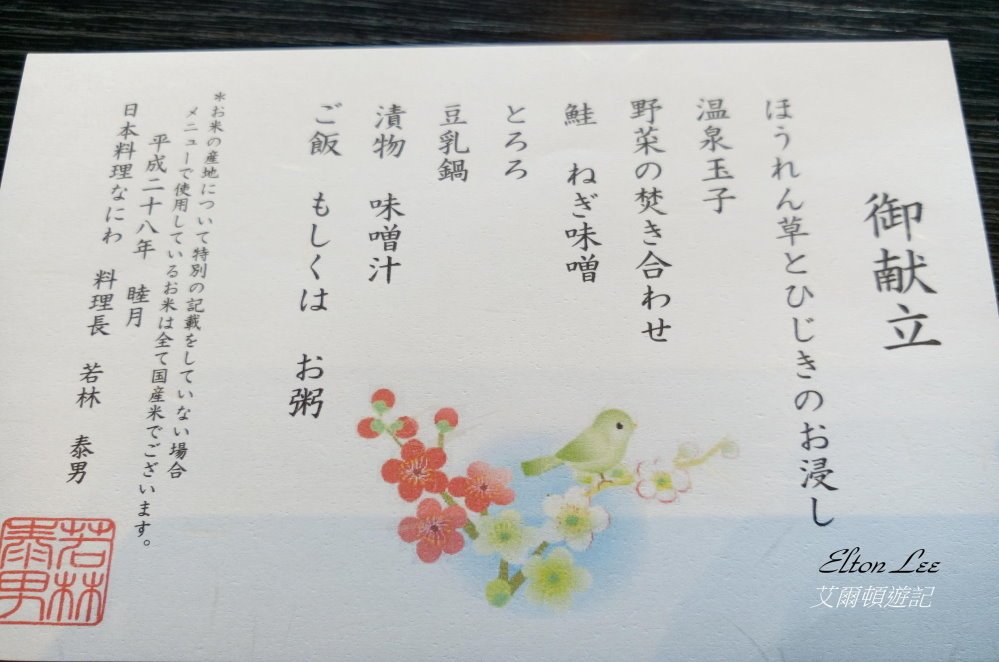 御献立
ほうれん草とひじきのお浸し
温泉玉子
野菜の焚き合わせ
鮭 ねぎ味噌
とろろ
豆乳鍋
漬物 味噌汁
ご飯 もしくは お粥
※お米の産地について特別の記載をしていない場合
メニューで使用しているお米は全て国産米でございます。
平成二十八年 睦月
日本料理なにわ 料理長 若林 泰男
若林
泰男
Elton Lee
艾爾頓遊記